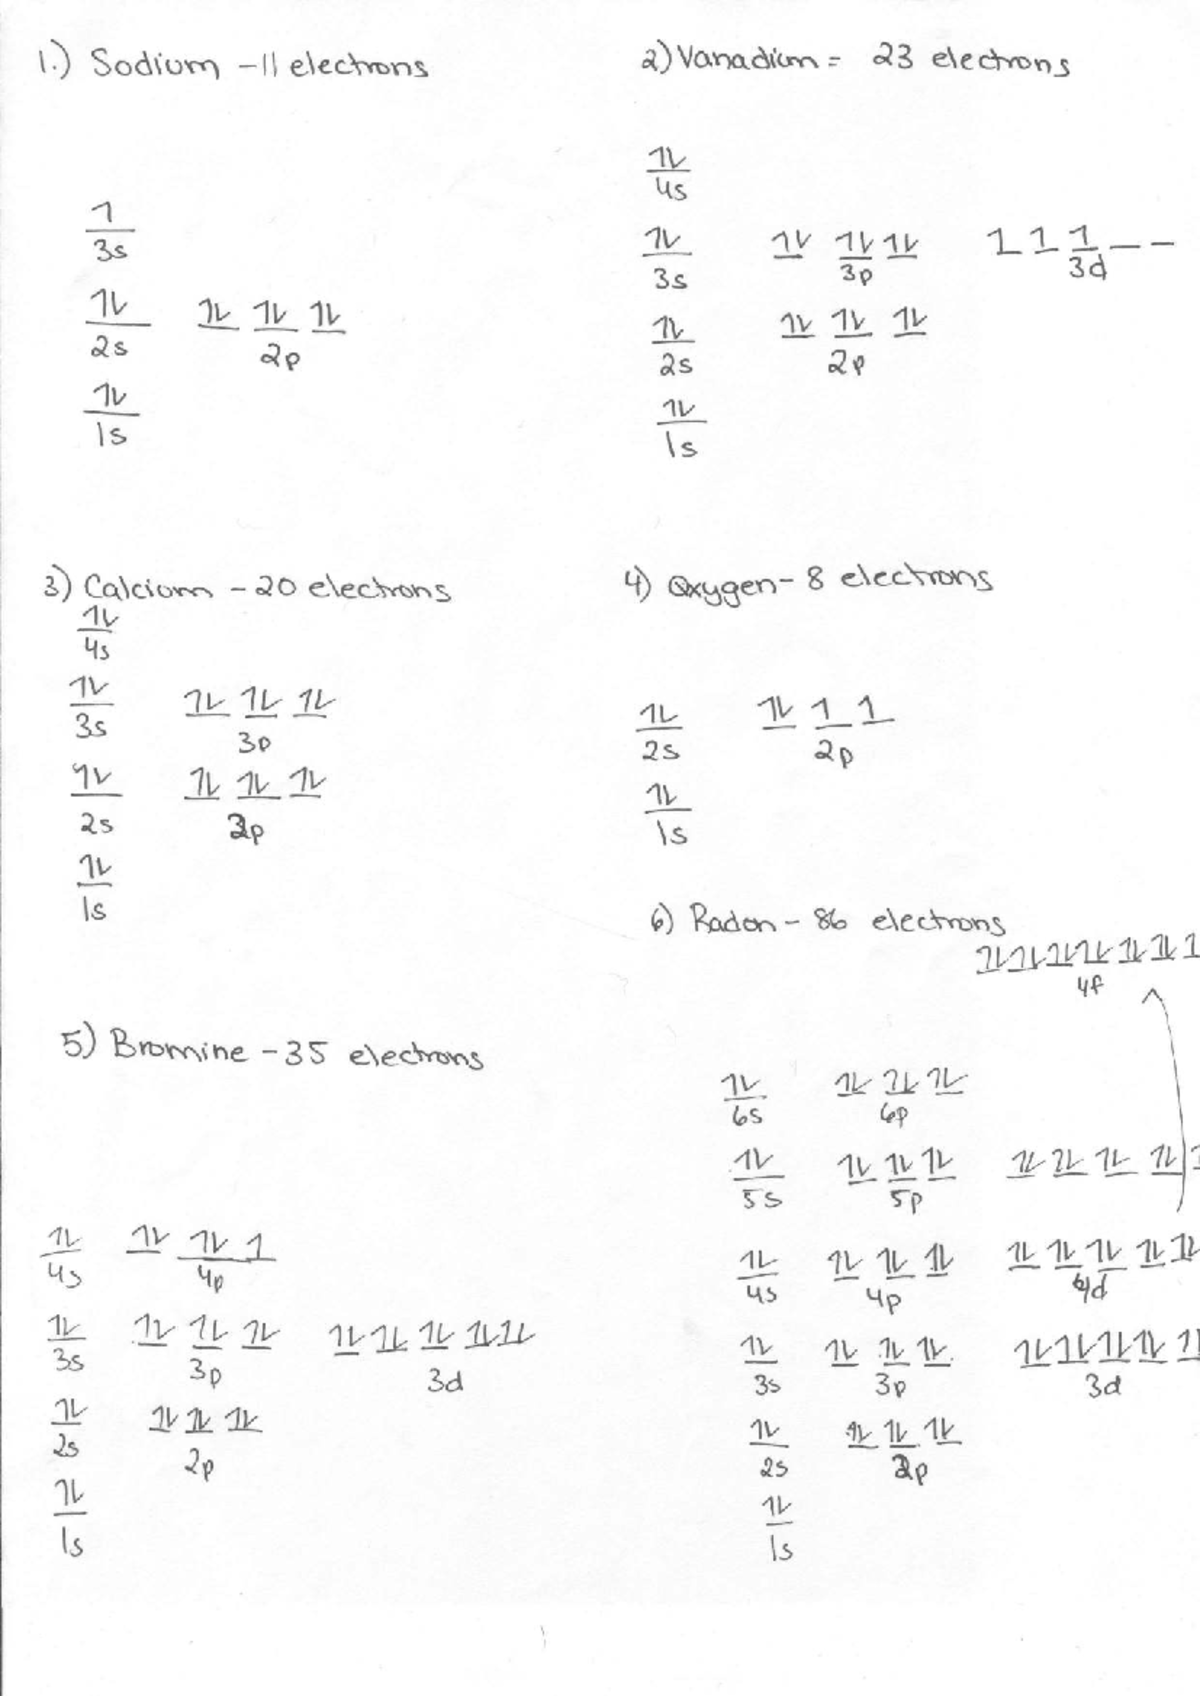 1.) Sodium - 11 electrons
1
3s
1L 1L 1L 1L
2s 2p
1L
1s
2) Vanadium = 23 electrons
1L
4s
1L 1L 1L 1L 1 1 1 _ _
3s 3p 3d
1L 1L 1L 1L
2s 2p
1L
1s
3) Calcium - 20 electrons
1L
4s
1L 1L 1L 1L
3s 3p
1L 1L 1L 1L
2s 2p
1L
1s
4) Oxygen - 8 electrons
1L 1L 1 1
2s 2p
1L
1s
5) Bromine - 35 electrons
1L 1L 1L 1
4s 4p
1L 1L 1L 1L 1L 1L 1L 1L 1L
3s 3p 3d
1L 1L 1L 1L
2s 2p
1L
1s
6) Radon - 86 electrons
1L 1L 1L 1L 1L 1L 1
4f
1L 1L 1L 1L
6s 6p
1L 1L 1L 1L 1L 1L 1L 1L 1
5s 5p
1L 1L 1L 1L 1L 1L 1L 1L 1L
4s 4p 4d
1L 1L 1L 1L 1L 1L 1L 1L 1L
3s 3p 3d
1L 1L 1L 1L
2s 2p
1L
1s